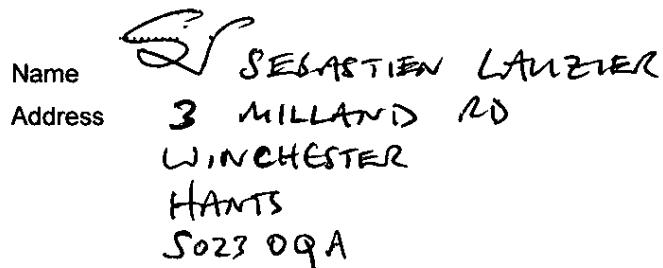 Name SEBASTIEN LAUZIER
Address 3 MILLAND RD
WINCHESTER
HANTS
SO23 0QA